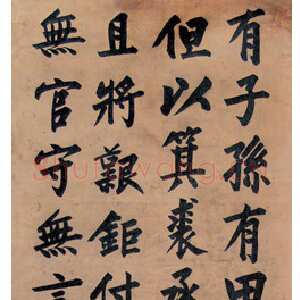 有子孫有田
但以箕裘承
且將艱鉅付
無官守無言